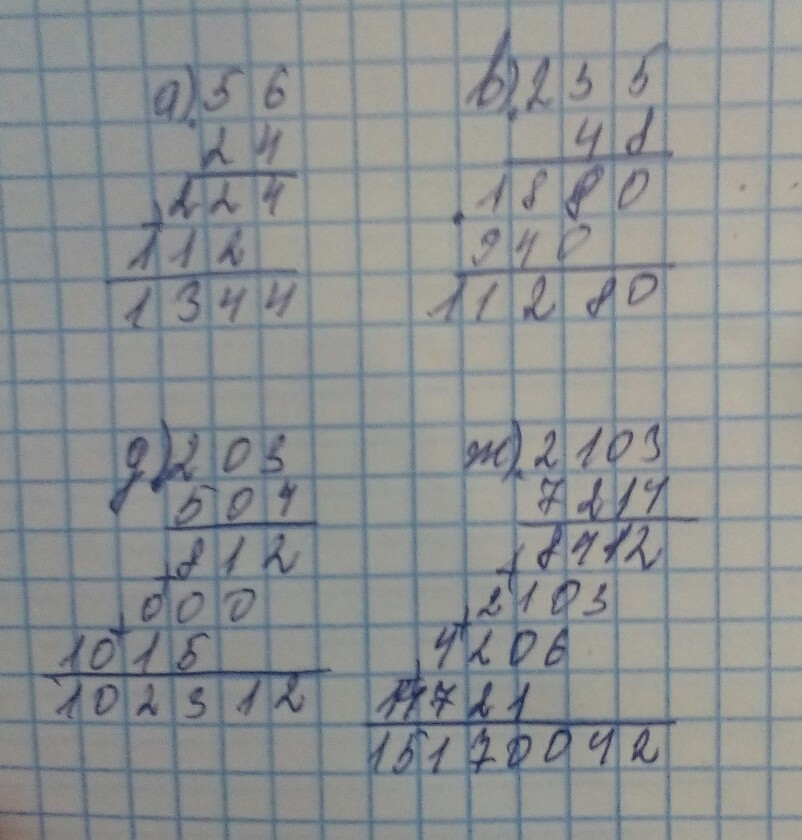 а) · 5 6
2 4
+ 2 2 4
1 1 2
1 3 4 4
в) · 2 3 5
4 8
+ 1 8 8 0
9 4 0
1 1 2 8 0
д) 2 0 3
5 0 4
+ 8 1 2
+ 0 0 0
1 0 1 5
1 0 2 3 1 2
ж) · 2 1 0 3
7 2 1 4
+ 8 4 1 2
+ 2 1 0 3
+ 4 2 0 6
1 4 7 2 1
1 5 1 7 0 0 4 2